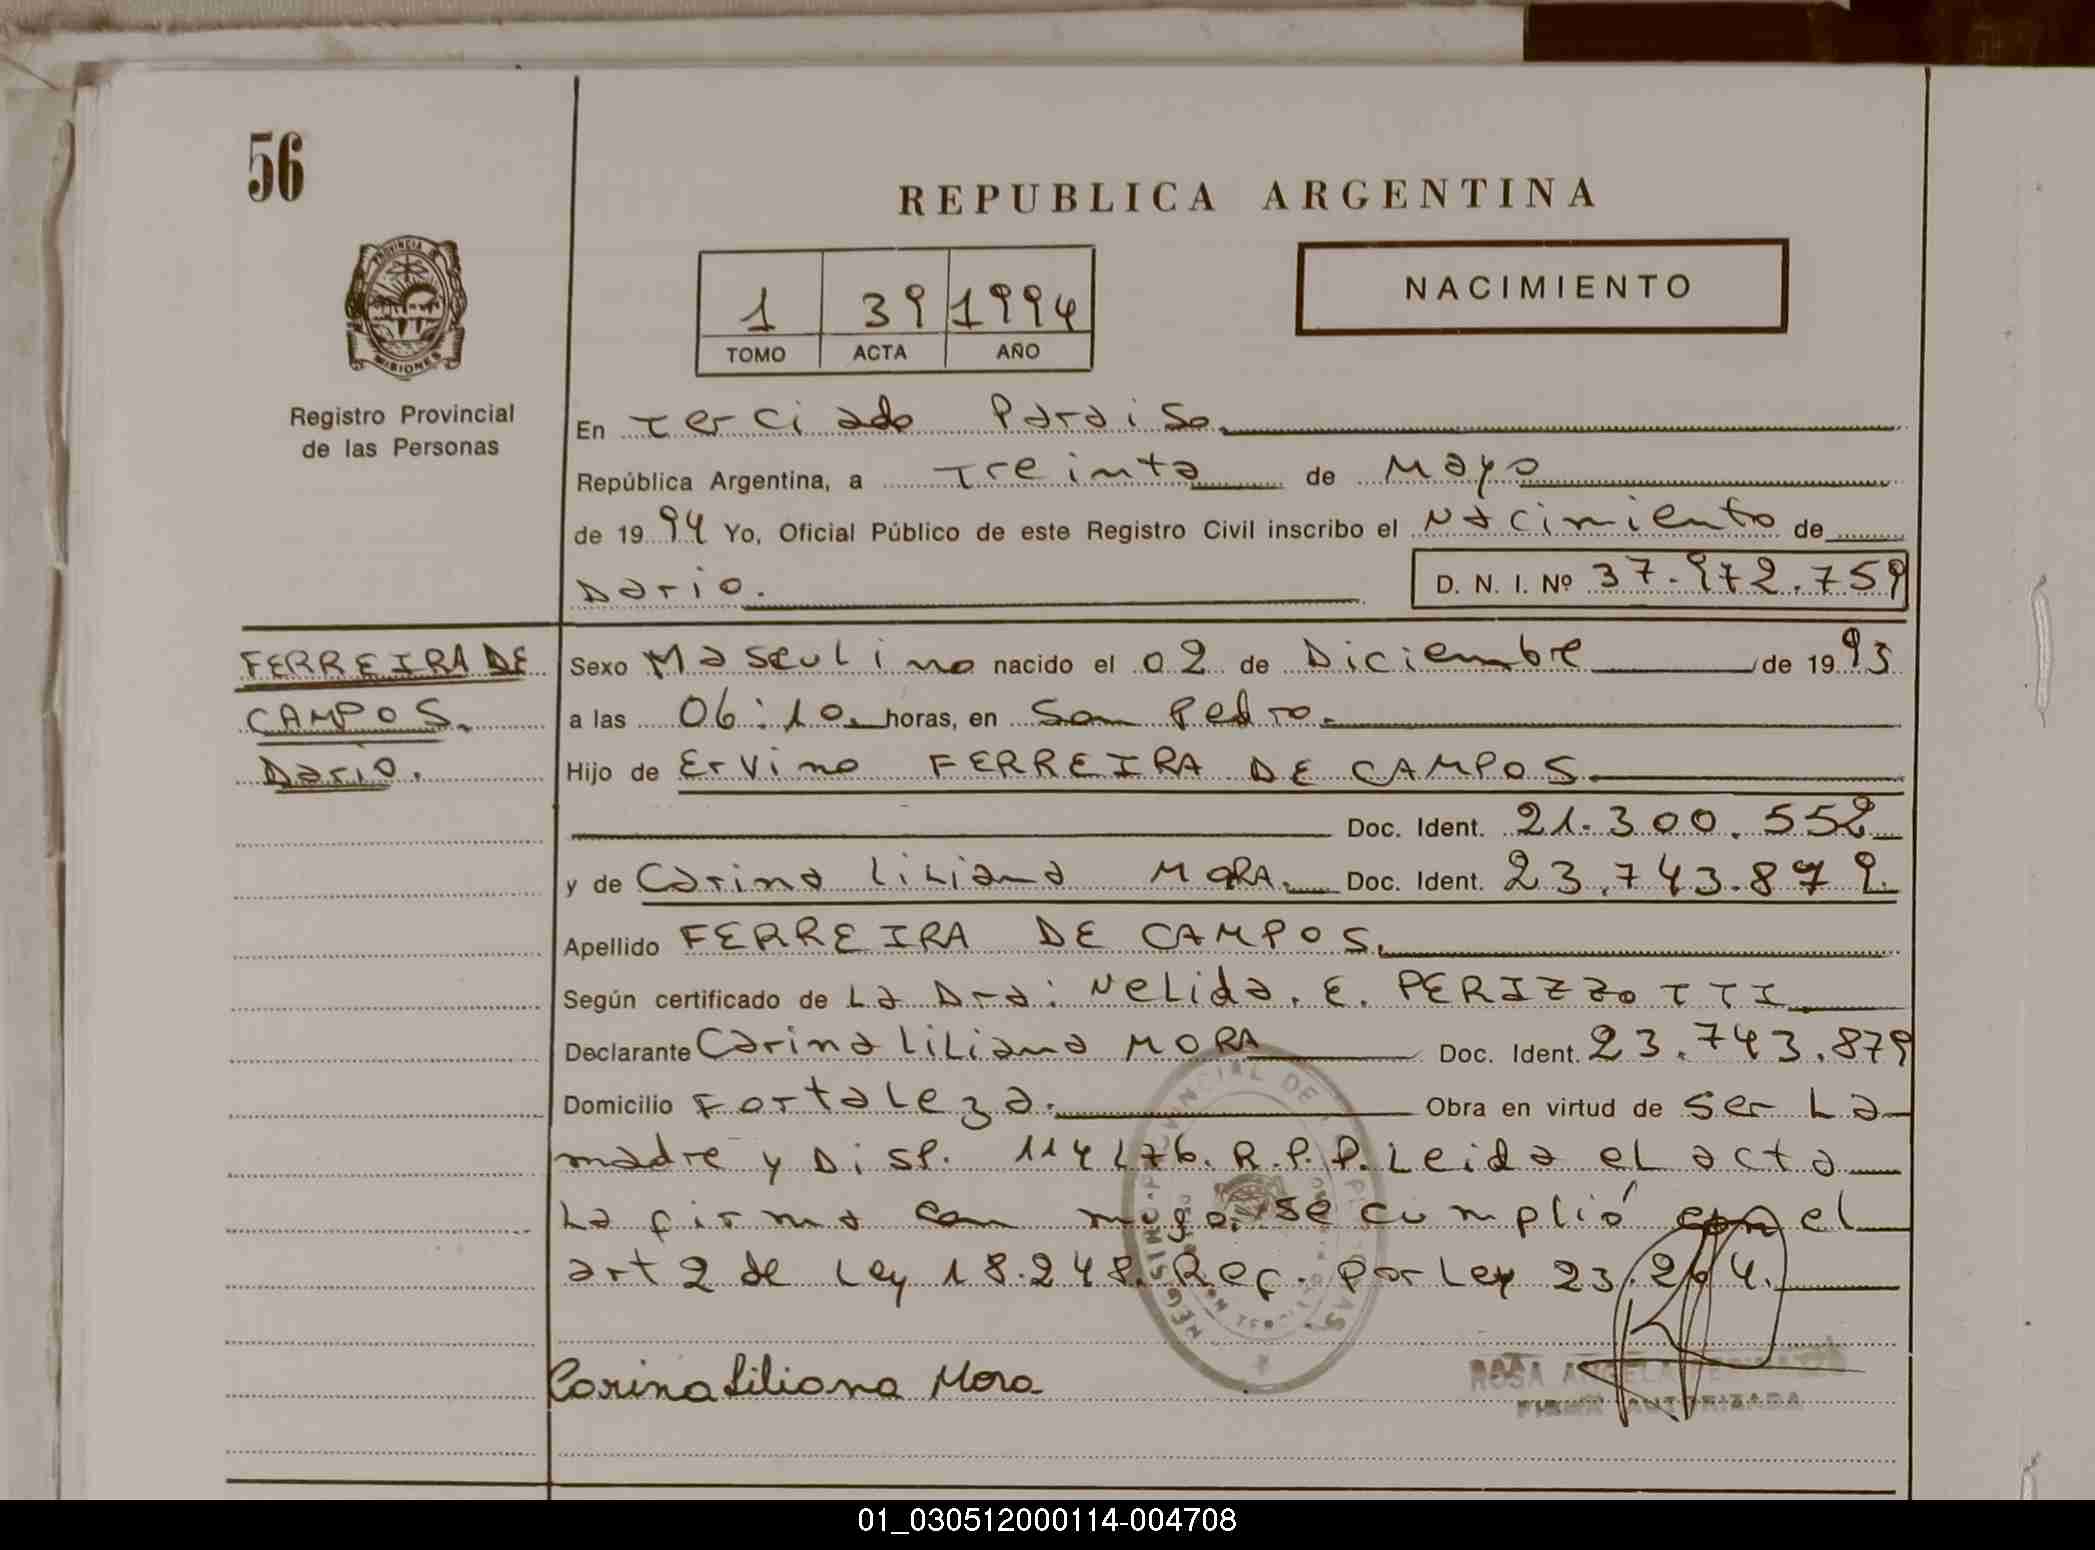 56
REPUBLICA ARGENTINA
PROVINCIA DE
MISIONES
Registro Provincial
de las Personas
1 39 1994
TOMO ACTA AÑO
NACIMIENTO
En Terciado Paraiso.
República Argentina, a Treinta de Mayo
de 1994 Yo, Oficial Público de este Registro Civil inscribo el Nacimiento de
Dario. D. N. I. Nº 37.972.759
FERREIRA DE
CAMPOS.
Dario.
Sexo Masculino nacido el 02 de Diciembre de 1993
a las 06:10. horas, en San Pedro.
Hijo de Ervino FERREIRA DE CAMPOS
Doc. Ident. 21.300.552
y de Carina Liliana MORA. Doc. Ident. 23.743.879.
Apellido FERREIRA DE CAMPOS.
Según certificado de La Dra: Nelida. E. PERIZZOTTI
Declarante Carina Liliana MORA Doc. Ident. 23.743.879
Domicilio Fortaleza. Obra en virtud de Ser La
madre y Disp. 114/76. R.P.P. Leida el acta
La firma con migo. Se cumplió con el
art 2 de Ley 18.248. Reg. Por Ley 23.264.
Carina Liliana Mora
ROSA ANGELA
FIRMA AUTORIZADA
01_030512000114-004708